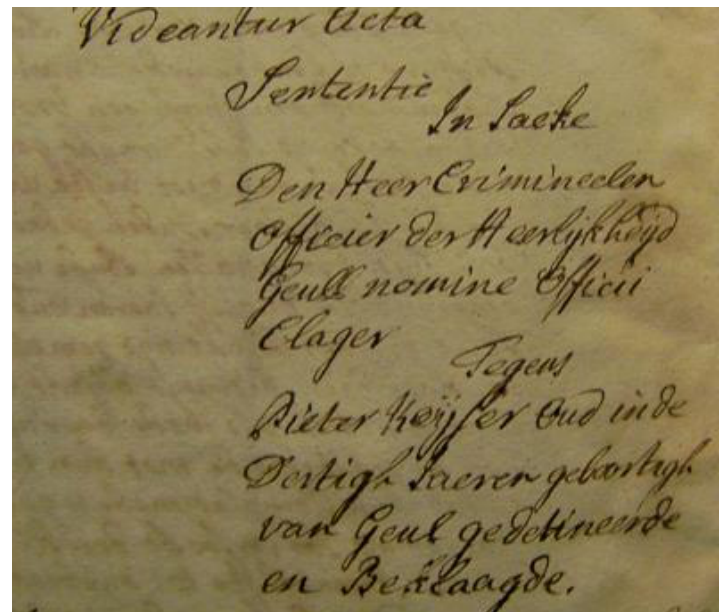 Videantur Acta
Sententie
In Saeke
Den Heer Crimineelen
Officier der Heerlijkheijd
Geull nomine Officii
Clager
Tegens
Pieter Keijser Oud in de
Dertigh Jaeren geboortigh
van Geul gedetineerde
en Beklaagde.